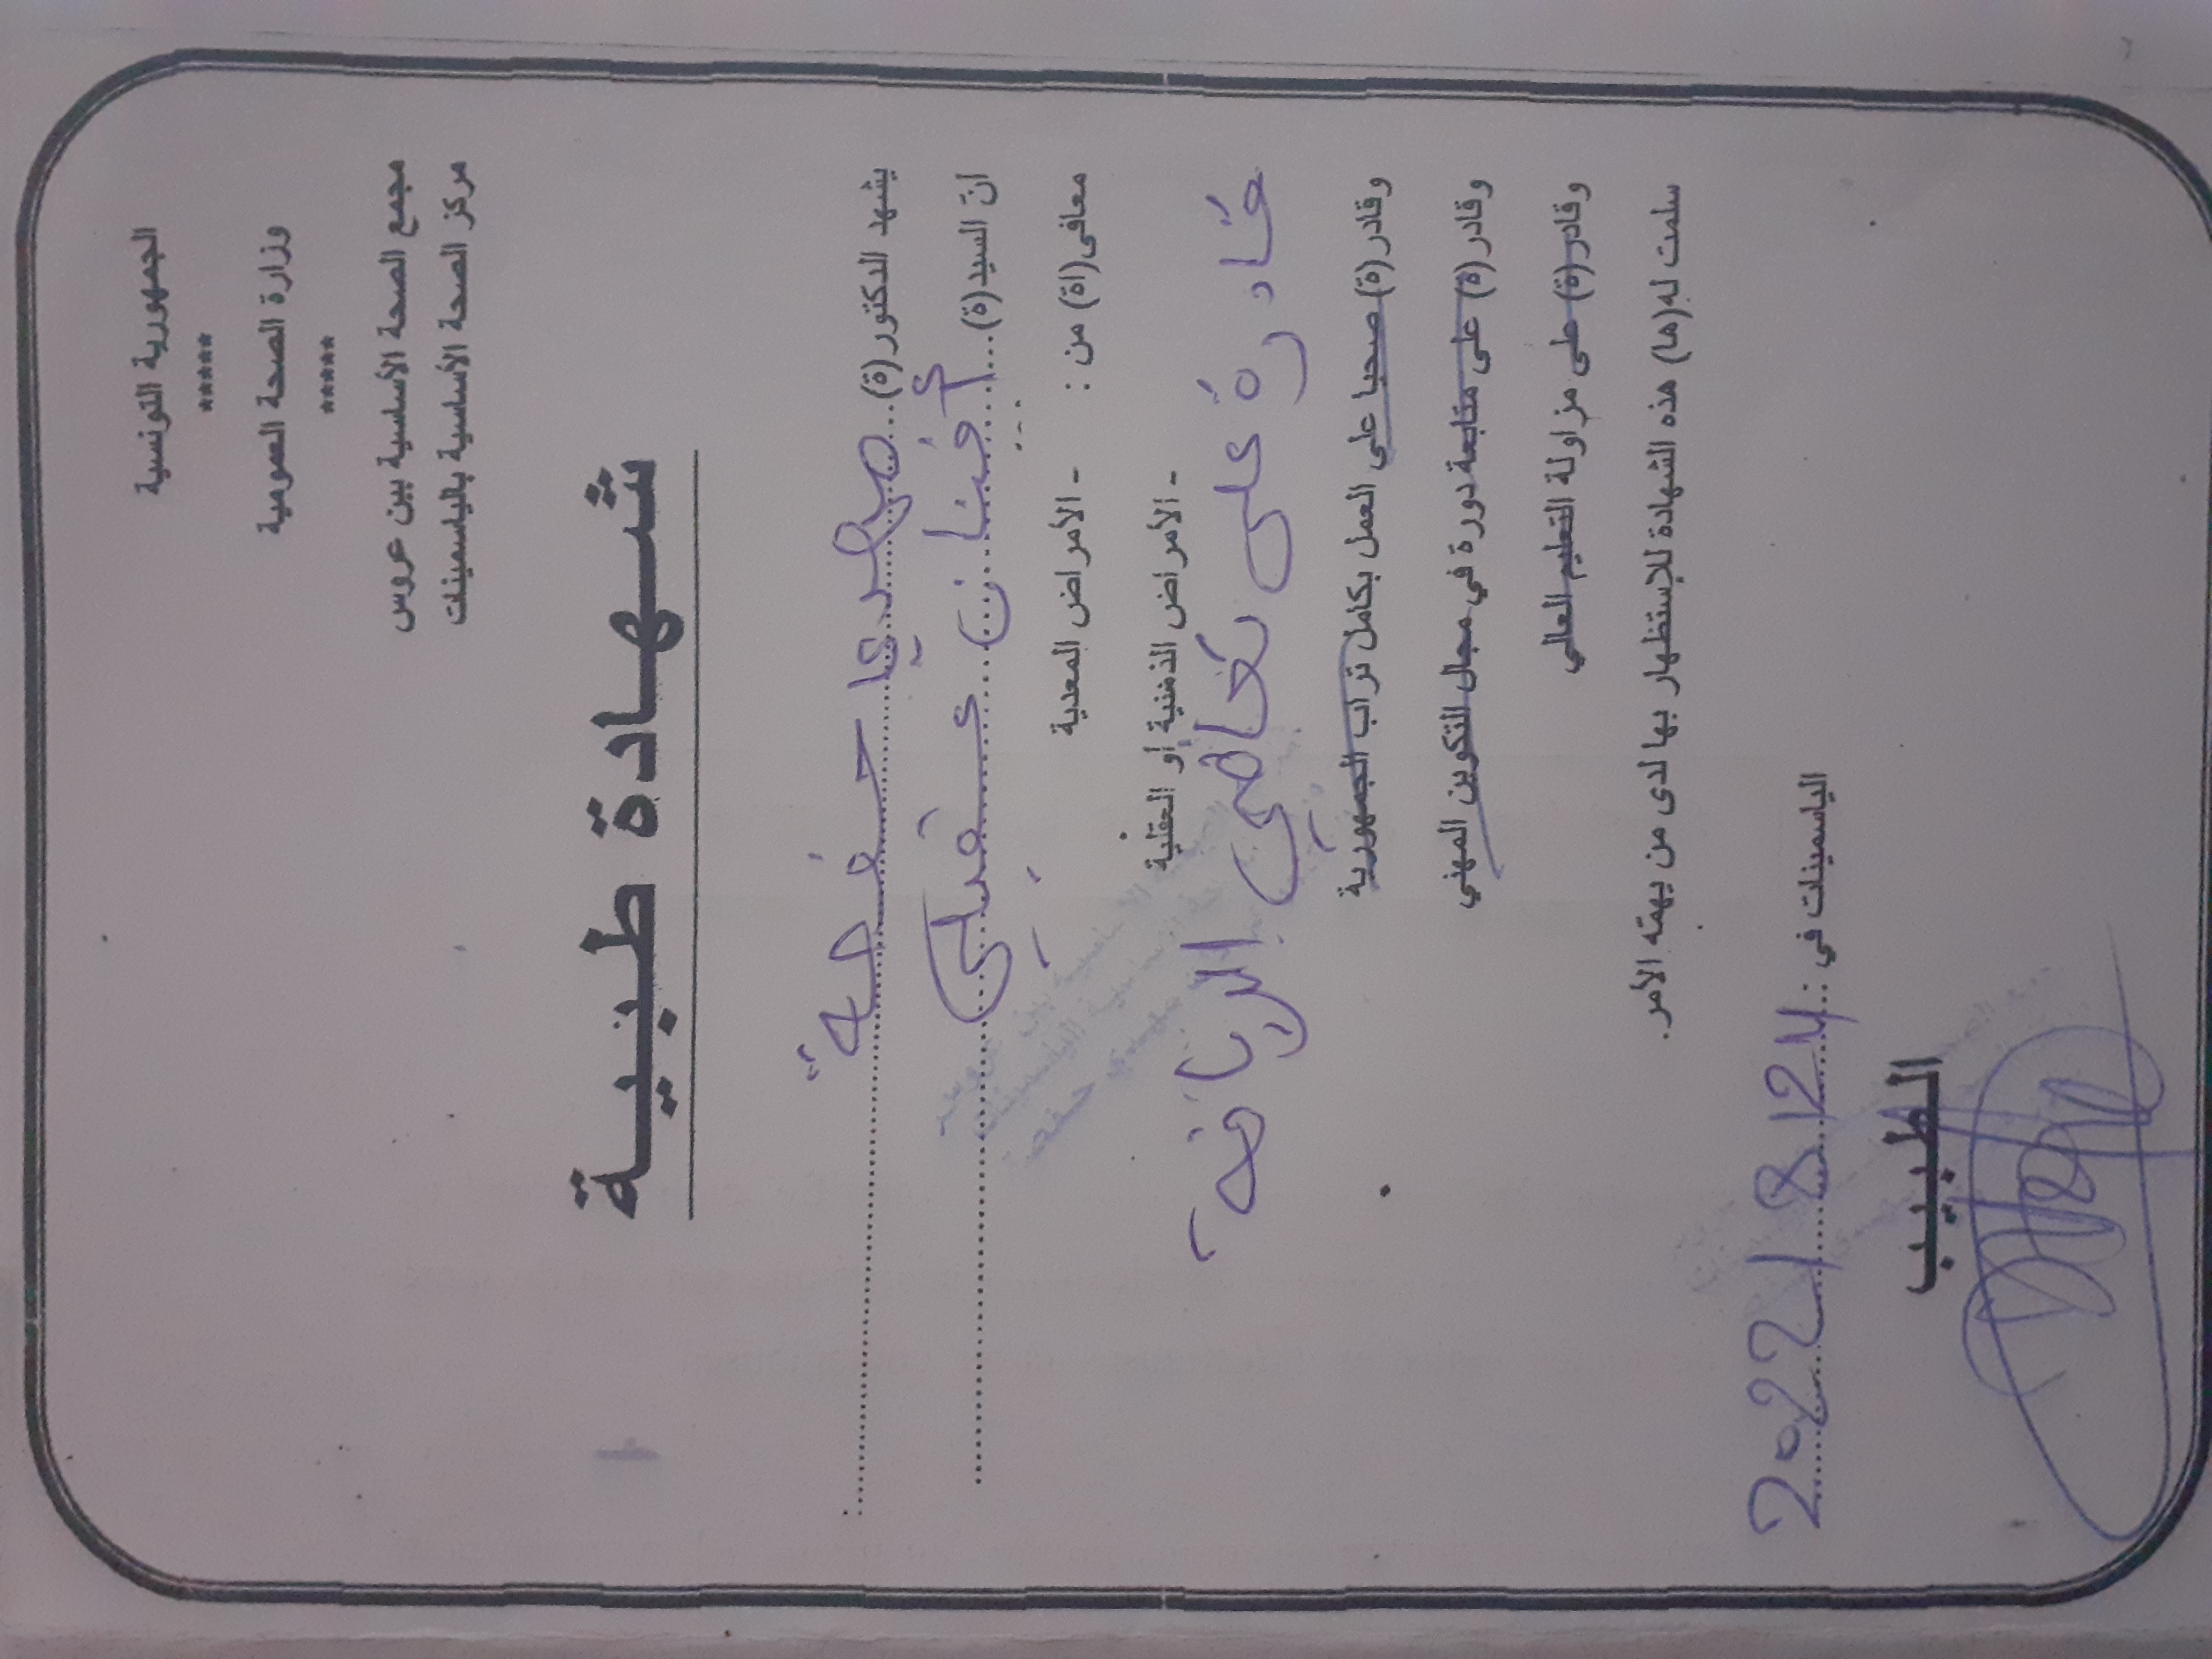 الجمهورية التونسية
*****
وزارة الصحة العمومية
*****
مجمع الصحة الأساسية ببن عروس
مركز الصحة الأساسية بالياسمينات
شهادة طبية
يشهد الدكتور(ة)
أن السيد(ة) أفنان
معافى(اة) من : - الأمراض المعدية
- الأمراض الذهنية أو العقلية
قادرة على تعاطي الرياضة
وقادر(ة) صحيا على العمل بكامل تراب الجمهورية
وقادر(ة) على متابعة دورة في مجال التكوين المهني
وقادر(ة) على مزاولة التعليم العالي
سلمت له(ها) هذه الشهادة للإستظهار بها لدى من يهمّه الأمر.
الياسمينات في : 2022/8/24
الطبيب